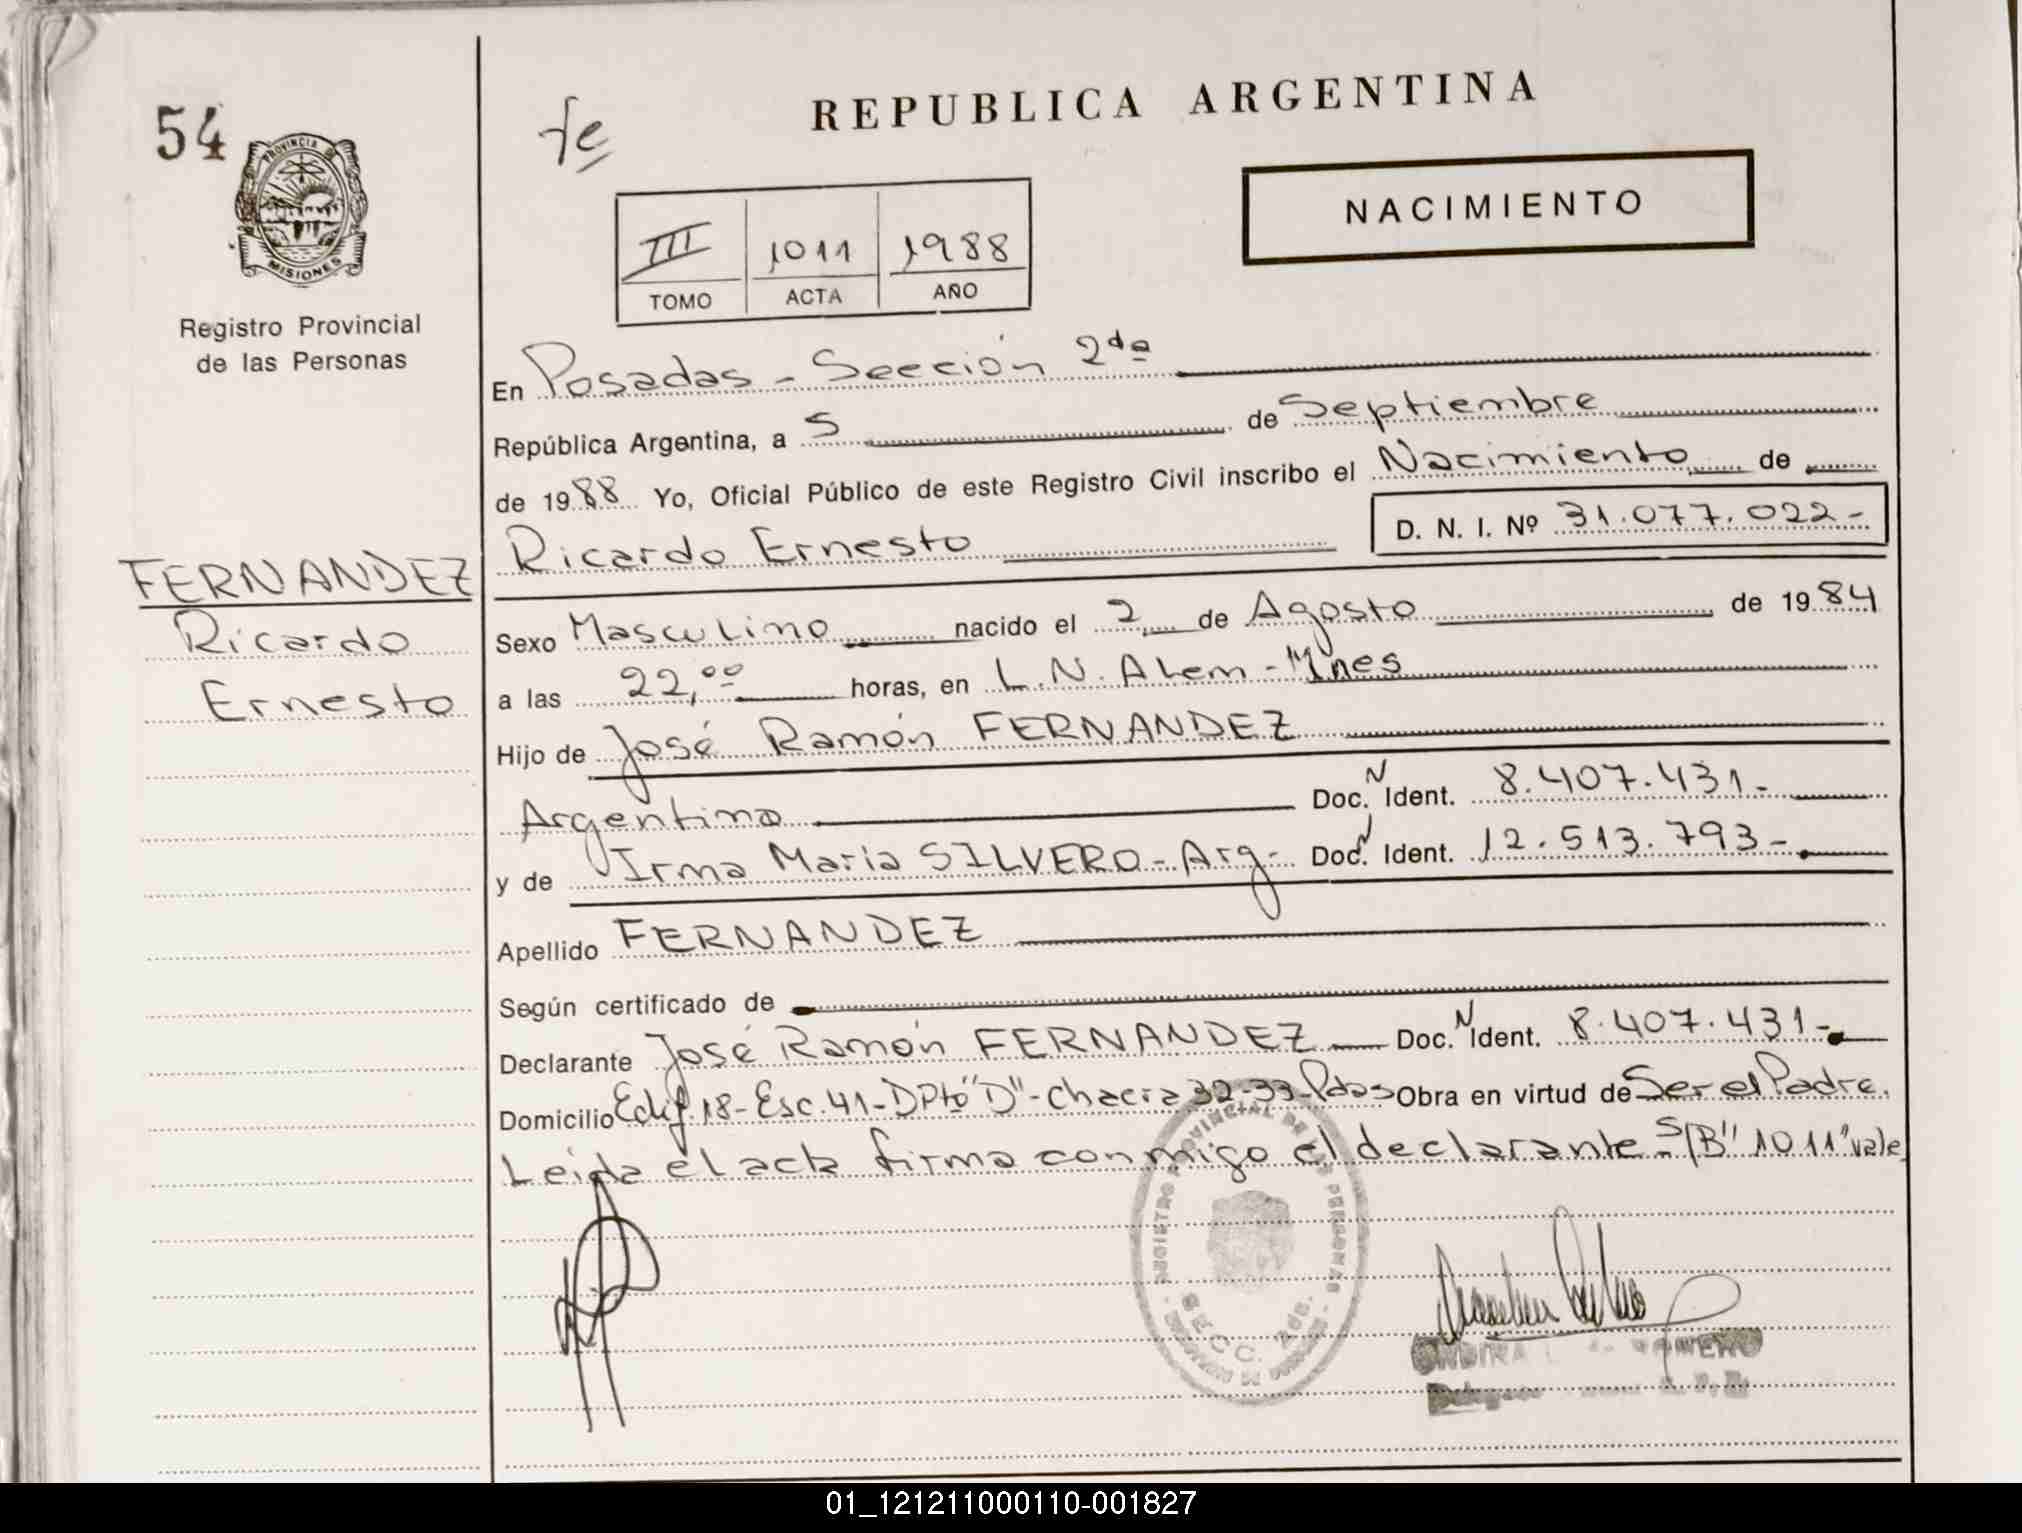 54
PROVINCIA DE
MISIONES
Registro Provincial
de las Personas
REPUBLICA ARGENTINA
NACIMIENTO
III 1011 1988
TOMO ACTA AÑO
En Posadas - Sección 2da
República Argentina, a 5 de Septiembre
de 1988 Yo, Oficial Público de este Registro Civil inscribo el Nacimiento de
D. N. I. Nº 31.077.022-
Ricardo Ernesto
FERNANDEZ
Ricardo
Ernesto
Sexo Masculino nacido el 2 de Agosto de 1984
a las 22,00 horas, en L.N. Alem - Mnes
Hijo de José Ramón FERNANDEZ
Argentino Doc. N Ident. 8.407.431-
y de Irma Maria SILVERO - Arg- Doc. N Ident. 12.513.793-
Apellido FERNANDEZ
Según certificado de
Declarante José Ramón FERNANDEZ Doc. N Ident. 8.407.431-
Domicilio Edif. 18- Esc. 41- DPto "D" - Chacra 32-33- Pdas Obra en virtud de Ser el Padre.
Leida el acta firma conmigo el declarante - S/B" 1011" vale
REGISTRO PROVINCIAL DE LAS PERSONAS
SECC. 2da.
01_121211000110-001827